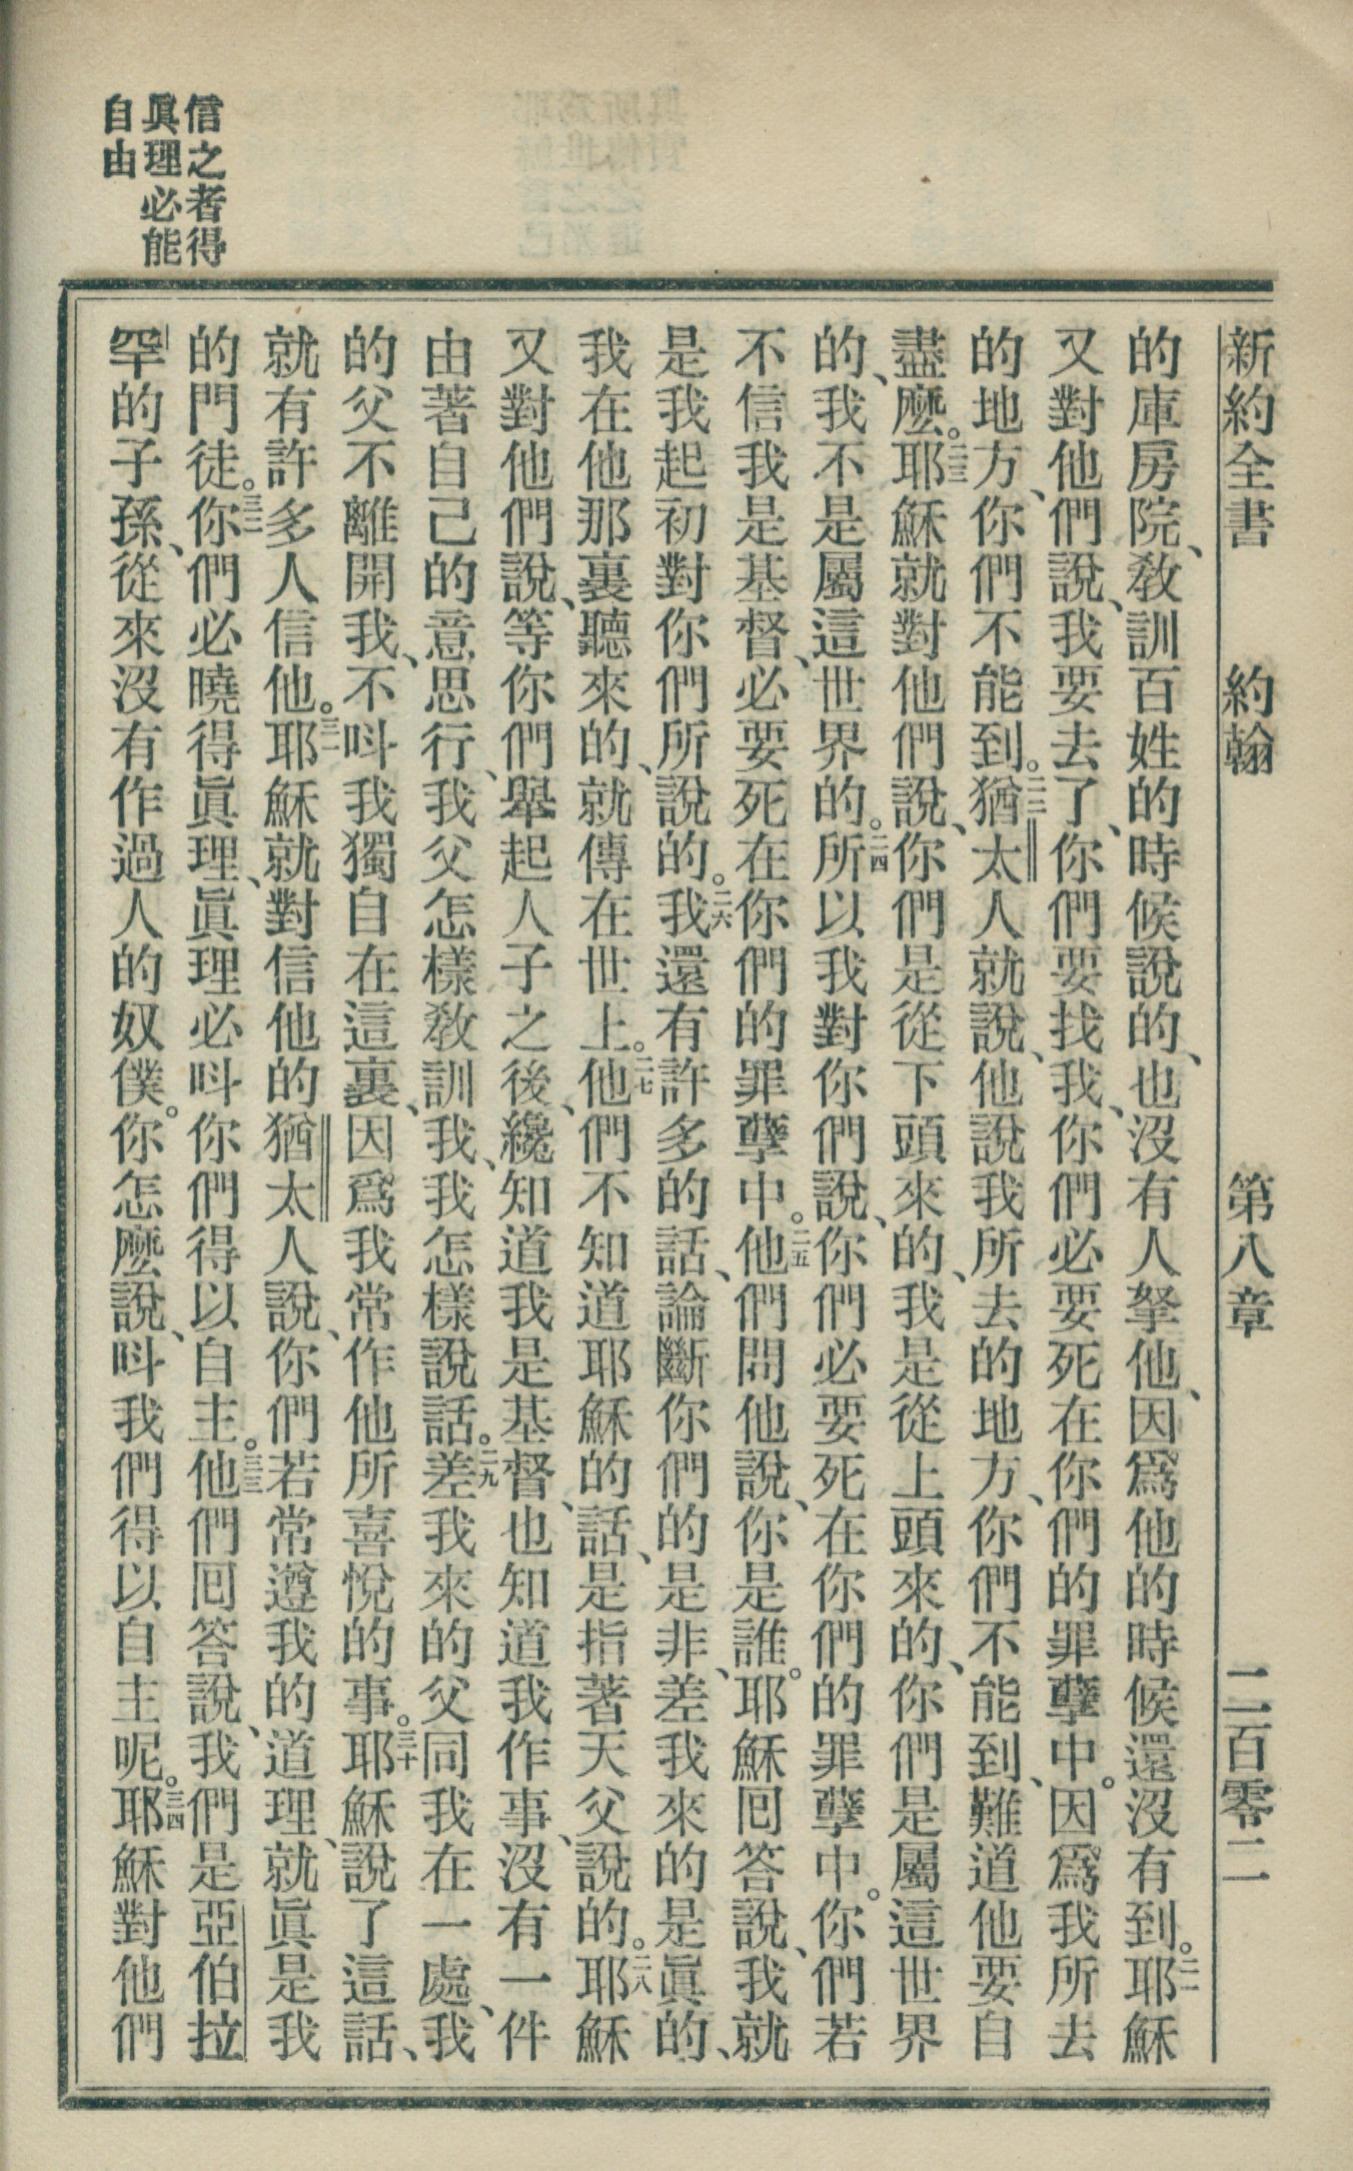 新約全書　約翰　第八章　二百零二
的庫房院、敎訓百姓的時候說的、也沒有人拏他、因爲他的時候還沒有到。二一耶穌
又對他們說、我要去了、你們要找我、你們必要死在你們的罪孽中。因爲我所去
的地方、你們不能到。二二猶太人就說、他說我所去的地方、你們不能到、難道他要自
盡麼。二三耶穌就對他們說、你們是從下頭來的、我是從上頭來的、你們是屬這世界
的、我不是屬這世界的。二四所以我對你們說、你們必要死在你們的罪孽中。你們若
不信我是基督、必要死在你們的罪孽中。二五他們問他說、你是誰。耶穌囘答說、我就
是我起初對你們所說的。二六我還有許多的話、論斷你們的是非、差我來的是眞的、
我在他那裏聽來的、就傳在世上。二七他們不知道耶穌的話、是指著天父說的。二八耶穌
又對他們說、等你們舉起人子之後、纔知道我是基督、也知道我作事、沒有一件
由著自己的意思行、我父怎樣敎訓我、我怎樣說話。二九差我來的父同我在一處、我
的父不離開我、不呌我獨自在這裏、因爲我常作他所喜悅的事。三十耶穌說了這話、
就有許多人信他。三一耶穌就對信他的猶太人說、你們若常遵我的道理、就眞是我
的門徒。三二你們必曉得眞理、眞理必呌你們得以自主。三三他們囘答說、我們是亞伯拉
罕的子孫、從來沒有作過人的奴僕。你怎麼說、呌我們得以自主呢。三四耶穌對他們
信之者得
眞理必能
自由